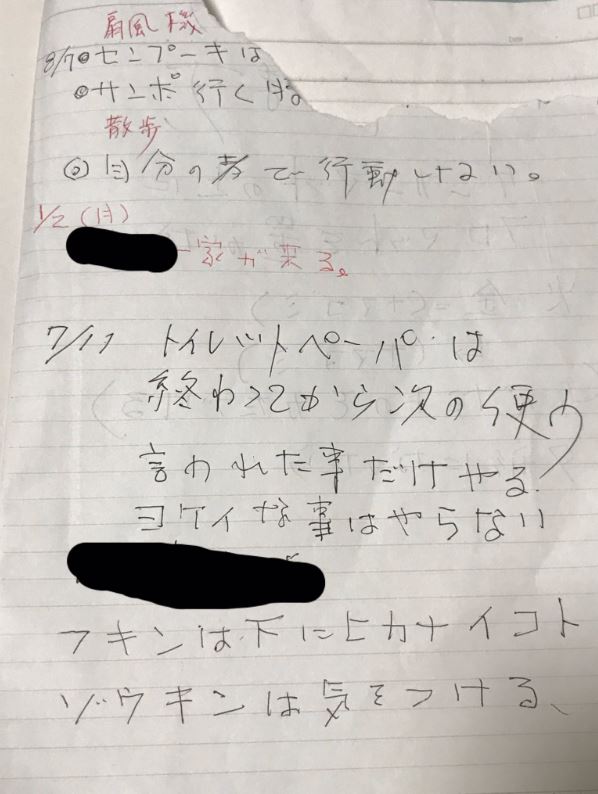 扇風機
8/7◎センプーキは
◎サンポ行く時
散歩
◎自分の考で行動しない。
1/2(月)
一家が来る。
7/11 トイレットペーパーは
終わってから次の使う
言われた事だけやる
ヨケイな事はやらない
フキンは下にヒカナイコト
ゾウキンは気をつける、